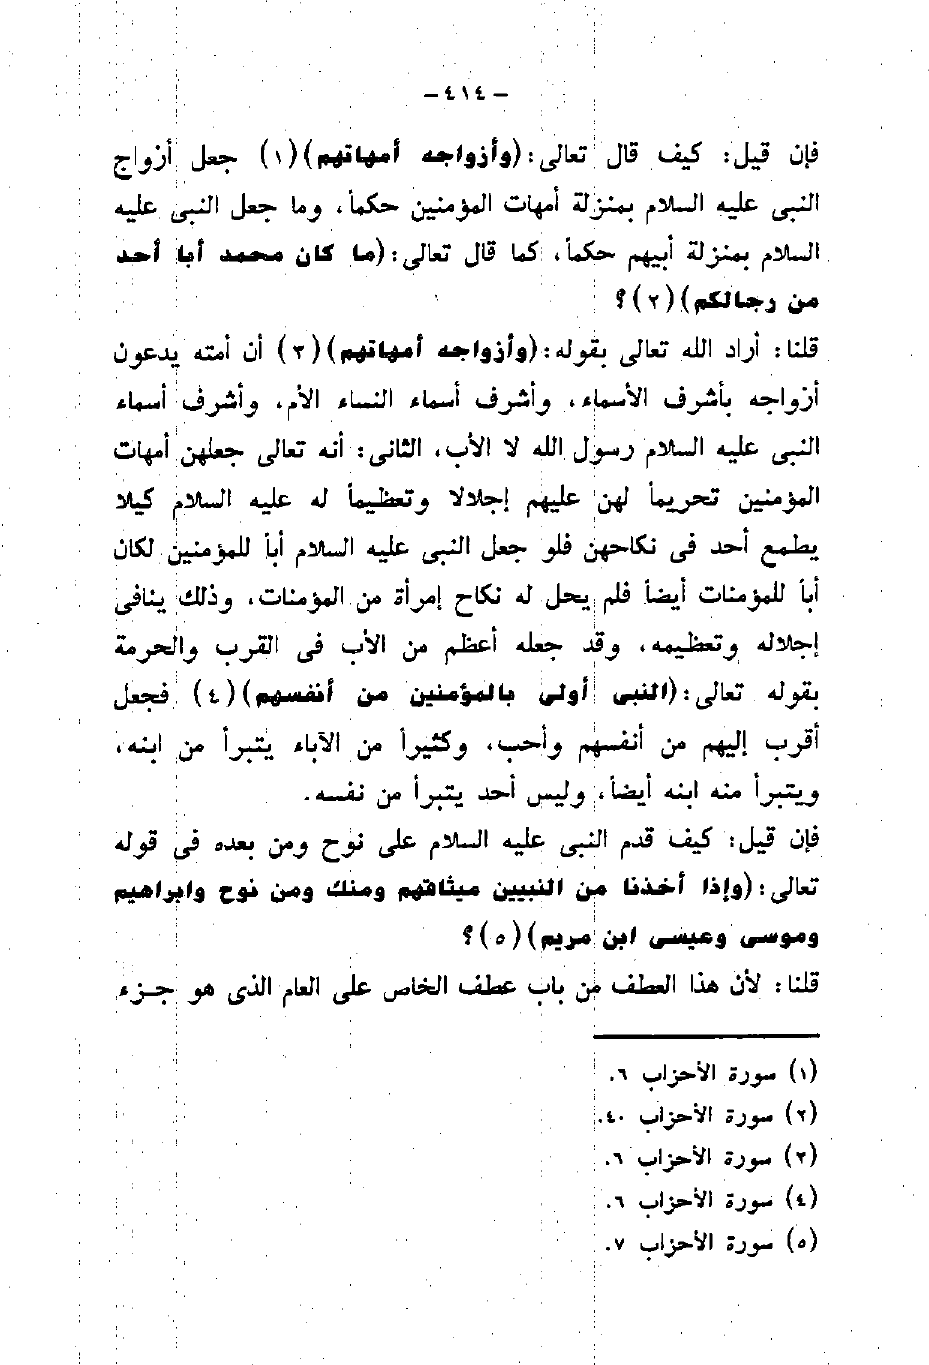 – ٤١٤ –
فإن قيل: كيف قال تعالى: (وأزواجه أمهاتهم) (١) جعل أزواج
النبى عليه السلام بمنزلة أمهات المؤمنين حكماً، وما جعل النبى عليه
السلام بمنزلة أبيهم حكماً، كما قال تعالى: (ما كان محمد أبا أحد
من رجالكم) (٢)؟
قلنا: أراد الله تعالى بقوله: (وأزواجه أمهاتهم) (٣) أن أمته يدعون
أزواجه بأشرف الأسماء، وأشرف أسماء النساء الأم، وأشرف أسماء
النبى عليه السلام رسول الله لا الأب، الثانى: أنه تعالى جعلهن أمهات
المؤمنين تحريماً لهن عليهم إجلالا وتعظيماً له عليه السلام كيلا
يطمع أحد فى نكاحهن فلو جعل النبى عليه السلام أباً للمؤمنين لكان
أباً للمؤمنات أيضاً فلم يحل له نكاح إمرأة من المؤمنات، وذلك ينافى
إجلاله وتعظيمه، وقد جعله أعظم من الأب فى القرب والحرمة
بقوله تعالى: (النبى أولى بالمؤمنين من أنفسهم) (٤) فجعل
أقرب إليهم من أنفسهم وأحب، وكثيراً من الآباء يتبرأ من ابنه،
ويتبرأ منه ابنه أيضاً، وليس أحد يتبرأ من نفسه.
فإن قيل: كيف قدم النبى عليه السلام على نوح ومن بعده فى قوله
تعالى: (وإذا أخذنا من النبيين ميثاقهم ومنك ومن نوح وابراهيم
وموسى وعيسى ابن مريم) (٥)؟
قلنا: لأن هذا العطف من باب عطف الخاص على العام الذى هو جـزء
(١) سورة الأحزاب ٦.
(٢) سورة الأحزاب ٤٠.
(٣) سورة الأحزاب ٦.
(٤) سورة الأحزاب ٦.
(٥) سورة الأحزاب ٧.